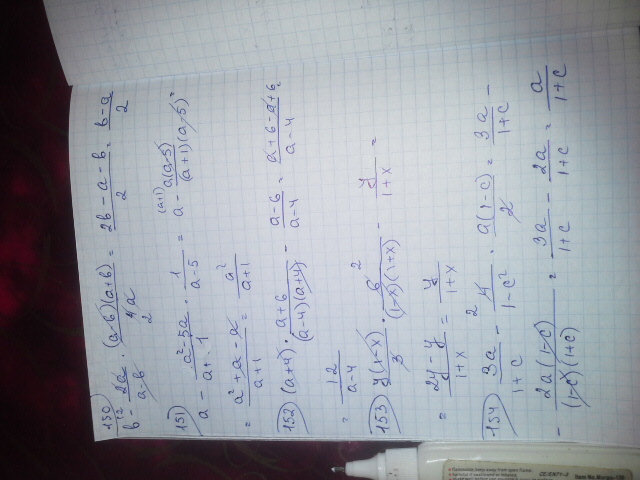 150) b - 2a/(a-b) · (a-b)(a+b)/4a = (2b-a-b)/2 = (b-a)/2
151) a - (a²-5a)/(a+1) · 1/(a-5) = a - a(a-5)/((a+1)(a-5)) =
= (a²+a-a)/(a+1) = a²/(a+1)
152) (a+4) · (a+6)/((a-4)(a+4)) - (a-6)/(a-4) = (a+6-a+6)/(a-4) =
= 12/(a-4)
153) y(1-x)/3 · 6/((1-x)(1+x)) - y/(1+x) =
= (2y-y)/(1+x) = y/(1+x)
154) 3a/(1+c) - 4/(1-c²) · a(1-c)/2 = 3a/(1+c) -
- 2a(1-c)/((1-c)(1+c)) = 3a/(1+c) - 2a/(1+c) = a/(1+c)